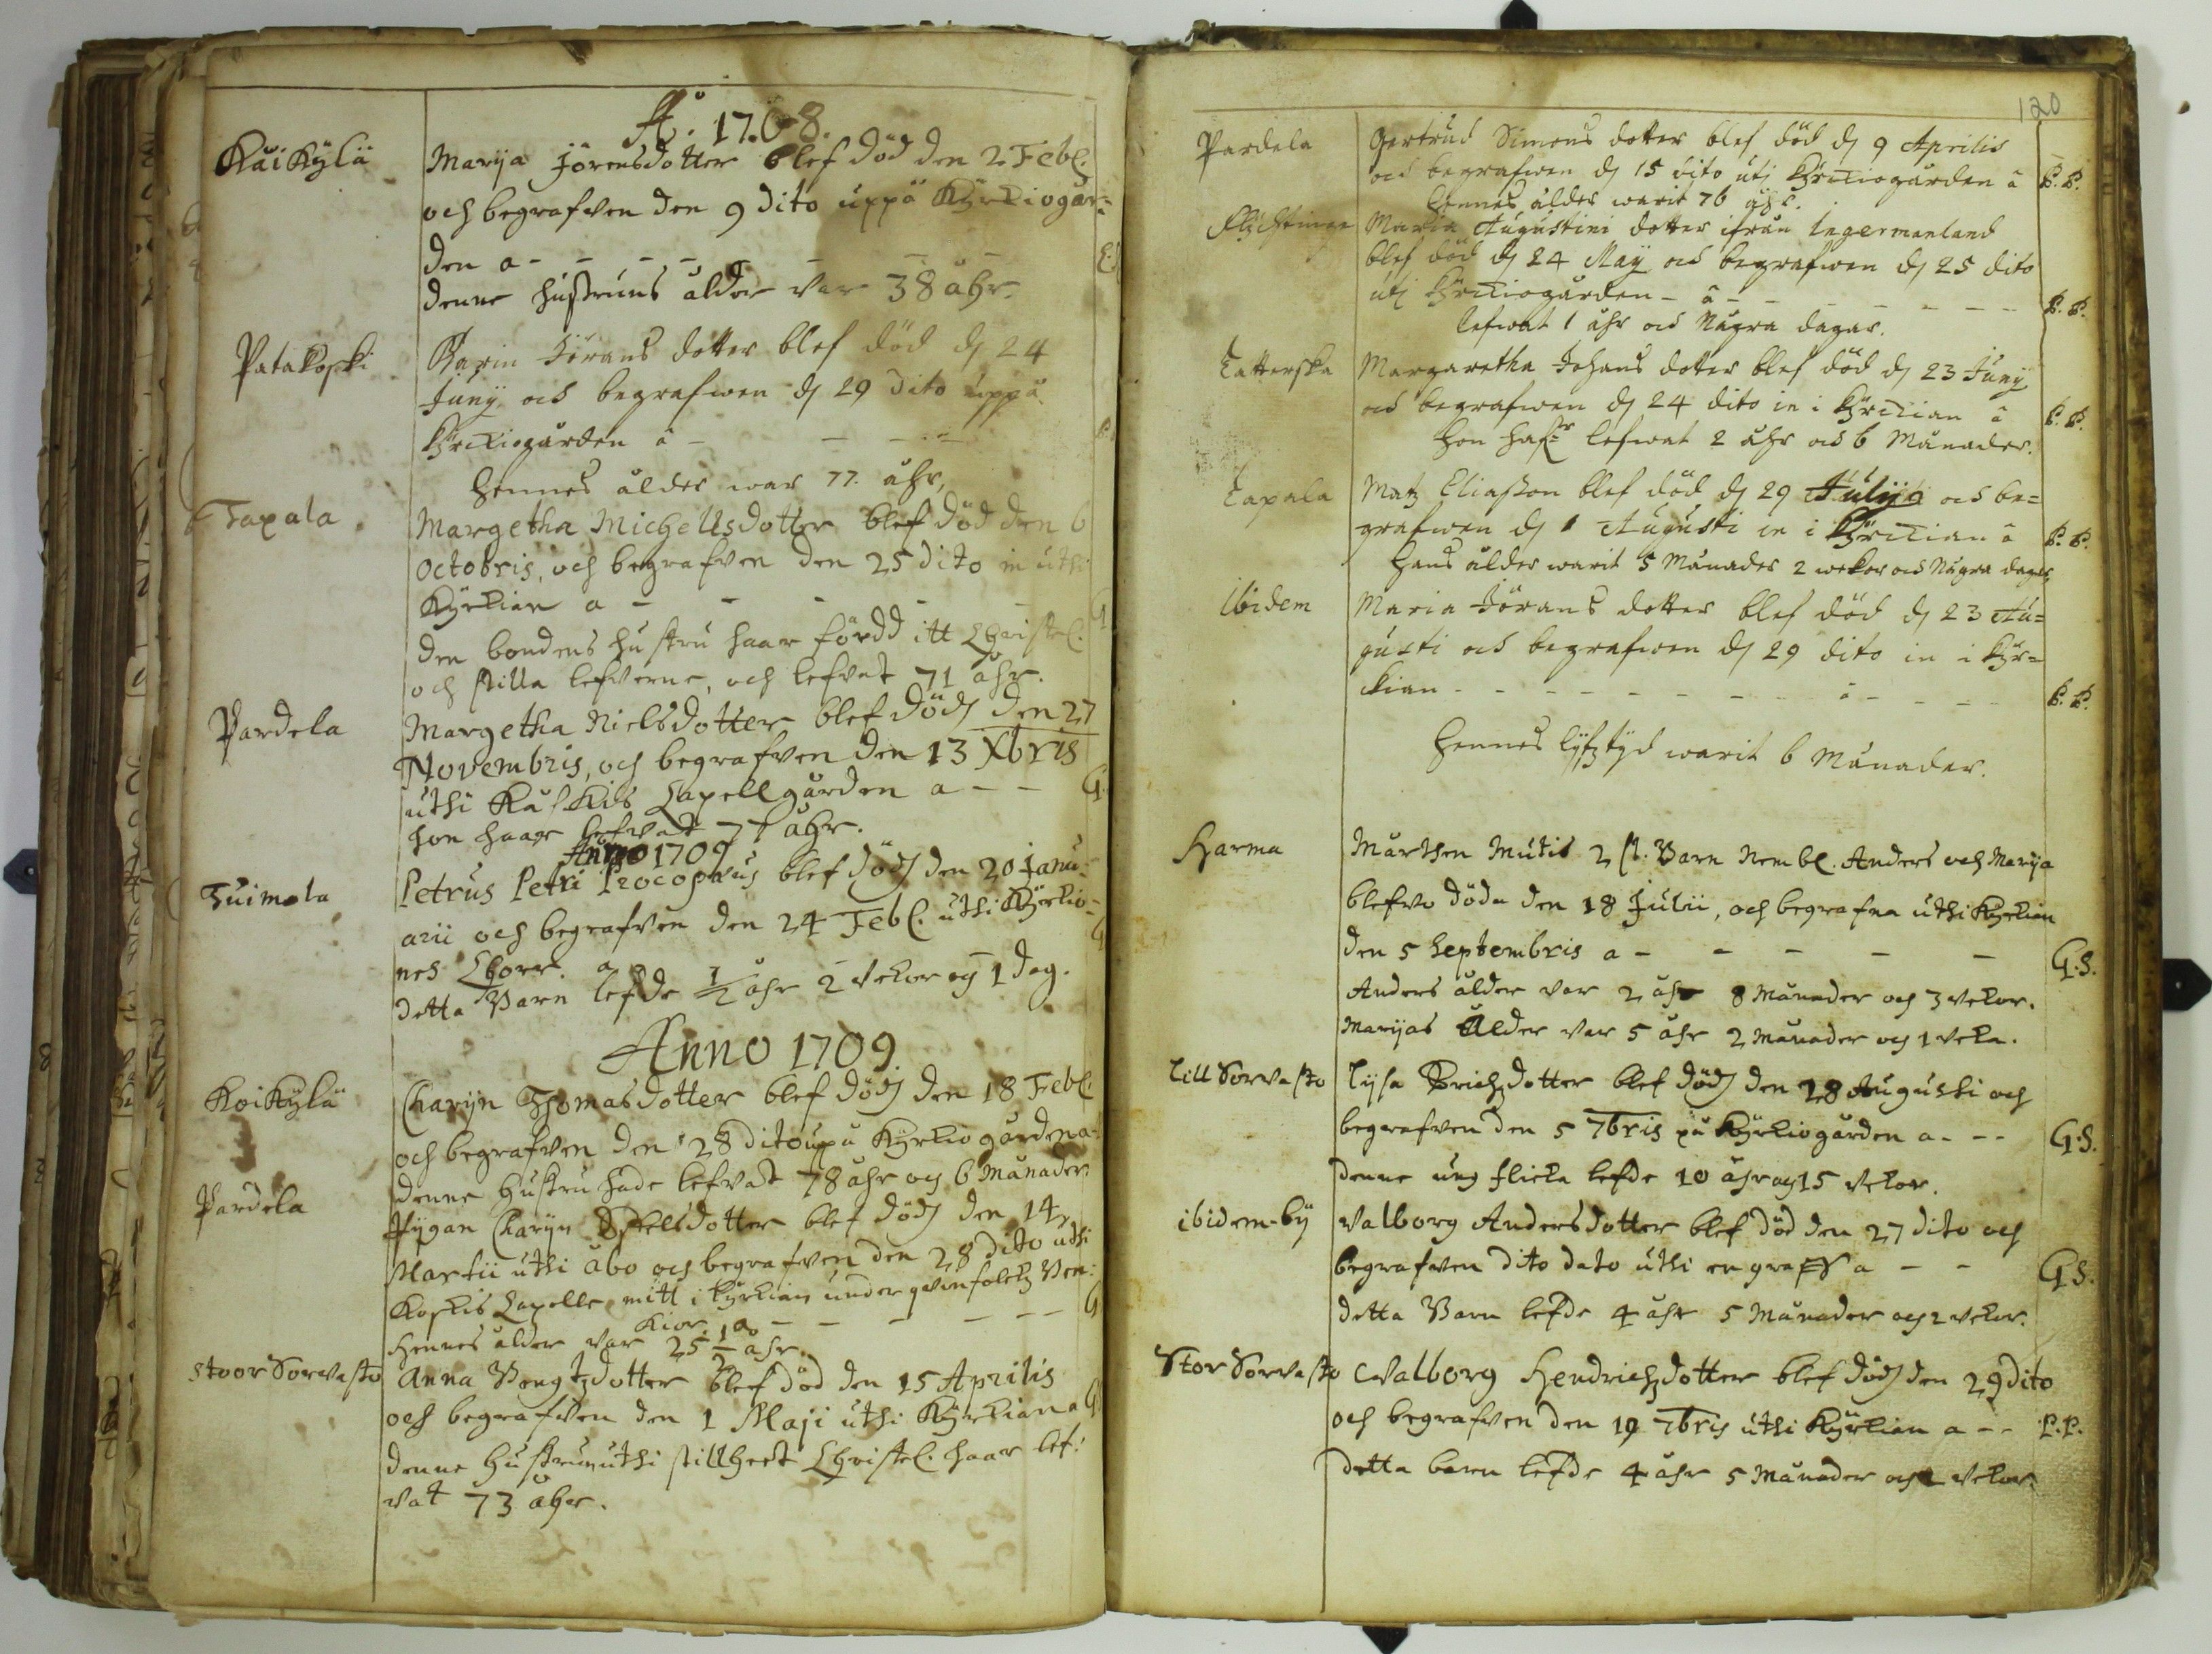 A:o 1708.
Käikÿlä Marija Jörensdotter blef död den 2 Febl.
och begrafven den 9 dito uppå Kyrkiogår=
den a - - - - - -
denne hustruns ålder var 38 åhr.
Patakoski Karin Jörans dotter blef död d. 24
Junij och begrafwen d. 29 dito uppå
Kyrckiogården â - - - -
hennes ålder war 77. åhr,
Tapala Margetha Michellsdotter blef död den 6
Octobris, och begrafven den 25 dito in uthi
Kyrkian a - - - - -
den bondens hustru haar fördd itt Christel.
och stilla lefverne, och lefvat 71 åhr.
Pardela Margetha Nielsdotter blef dödh den 27
Novembris, och begrafven den 13 Xbris
uthi Capellgården a - - G.
hon haar lefvat 71 åhr.
Anno 1709
Tuimala Petrus Petri Procopæus blef dödh den 20 Janu=
arii och begrafven den 24 Febl. uthi Kyrkio=
nes Chorr. a
detta Barn lefde 1/2 åhr 2 vekor og 1 dag.
Anno 1709
Koikÿlä Charijn Thomasdotter blef dödh den 18 Febl.
och begrafven den 28 dito upå Kyrkiogården a
denne hustru hade lefvat 78 åhr og 6 Månader.
Pardela Pijgan Charijn dotter blef dödh den 14
Martii uthi Åbo och begrafven den 28 dito uthi
Koskis Capelle mitt i kyrkian under qvinfolckz
a - - - - - G
Hennes ålder var 25 1/2 åhr.
Stoor Sorvasto Anna Bengtzdotter blef död den 15 Aprilis
och begrafven den 1 Maji uthi Kyrkian a G
denne hustru uthi stillheet Christel. haar lef:
vat 73 åhr.
120
Pardela Gertrud Simons dotter blef död d. 9 Aprilis
och begrafwen d. 15 dito utj Kyrckiogården â P. P.
hennes ålder warit 76 åhr.
Maria Augustini dotter ifrån Ingermanland
blef död d. 24 Maÿ och begrafwen d. 25 dito
utj Kyrckiogården - â - - - - - - P. P.
lefwat 1 åhr och Några dagar.
Tatterska Margaretha Johans dotter blef död d. 23 Junij
och begrafwen d. 24 dito in i Kyrckian â P. P.
hon hafr lefwat 2 åhr och 6 Månader.
Tapala Matz Eliasson blef död d. 29 Julij och be=
grafwen d. 1 Augusti in i Kyrckian â P. P.
hans ålder warit 5 Månader 2 wekor och Några dagar
Ibidem Maria Jörans dotter blef död d. 23 Au=
gusti och begrafwen d. 29 dito in i Kyr=
ckian - - - - - - - - â - - - - P. P.
hennes lÿfztÿd warit 6 Månader.
Harma Mårthen Mutis 2 st. Barn Nembl. Anders och Marija
blefvo döda den 18 Julii, och begrafna uthi Kyrkian
den 5 Septembris a - - - - - G. S.
Anders ålder var 2 åhr 8 Månader och 3 vekor.
Marijas ålder var 5 åhr 2 Månader og 1 veka.
Lill Sorvasto Lijsa Erichzdotter blef dödh den 28 Augusti och
begrafven den 5 7bris på Kyrkiogården a - - - G. S.
denne ung flicka lefde 10 åhr og 15 vekor.
ibidem-bÿ Valborg Andersdotter blef död den 27 dito och
begrafven dito dato uthi en graff a - - G. S.
detta Barn lefde 4 åhr 5 Månader og 2 vekor.
Stor Sorvasto Valborg Hendrichzdotter blef dödh den 29 dito
och begrafven den 19 7bris uthi Kyrkian a - - P. P.
detta barn lefde 4 åhr 5 Månader och 2 vekor.